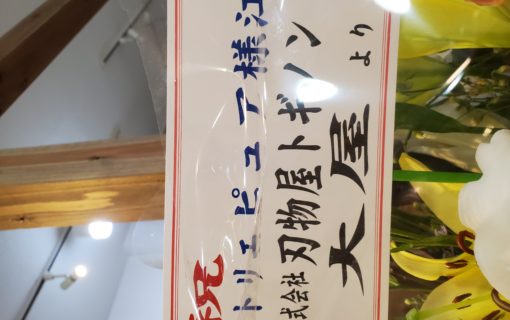 祝
トリエピュア様江
式会社 刃物屋トギノン
大屋より